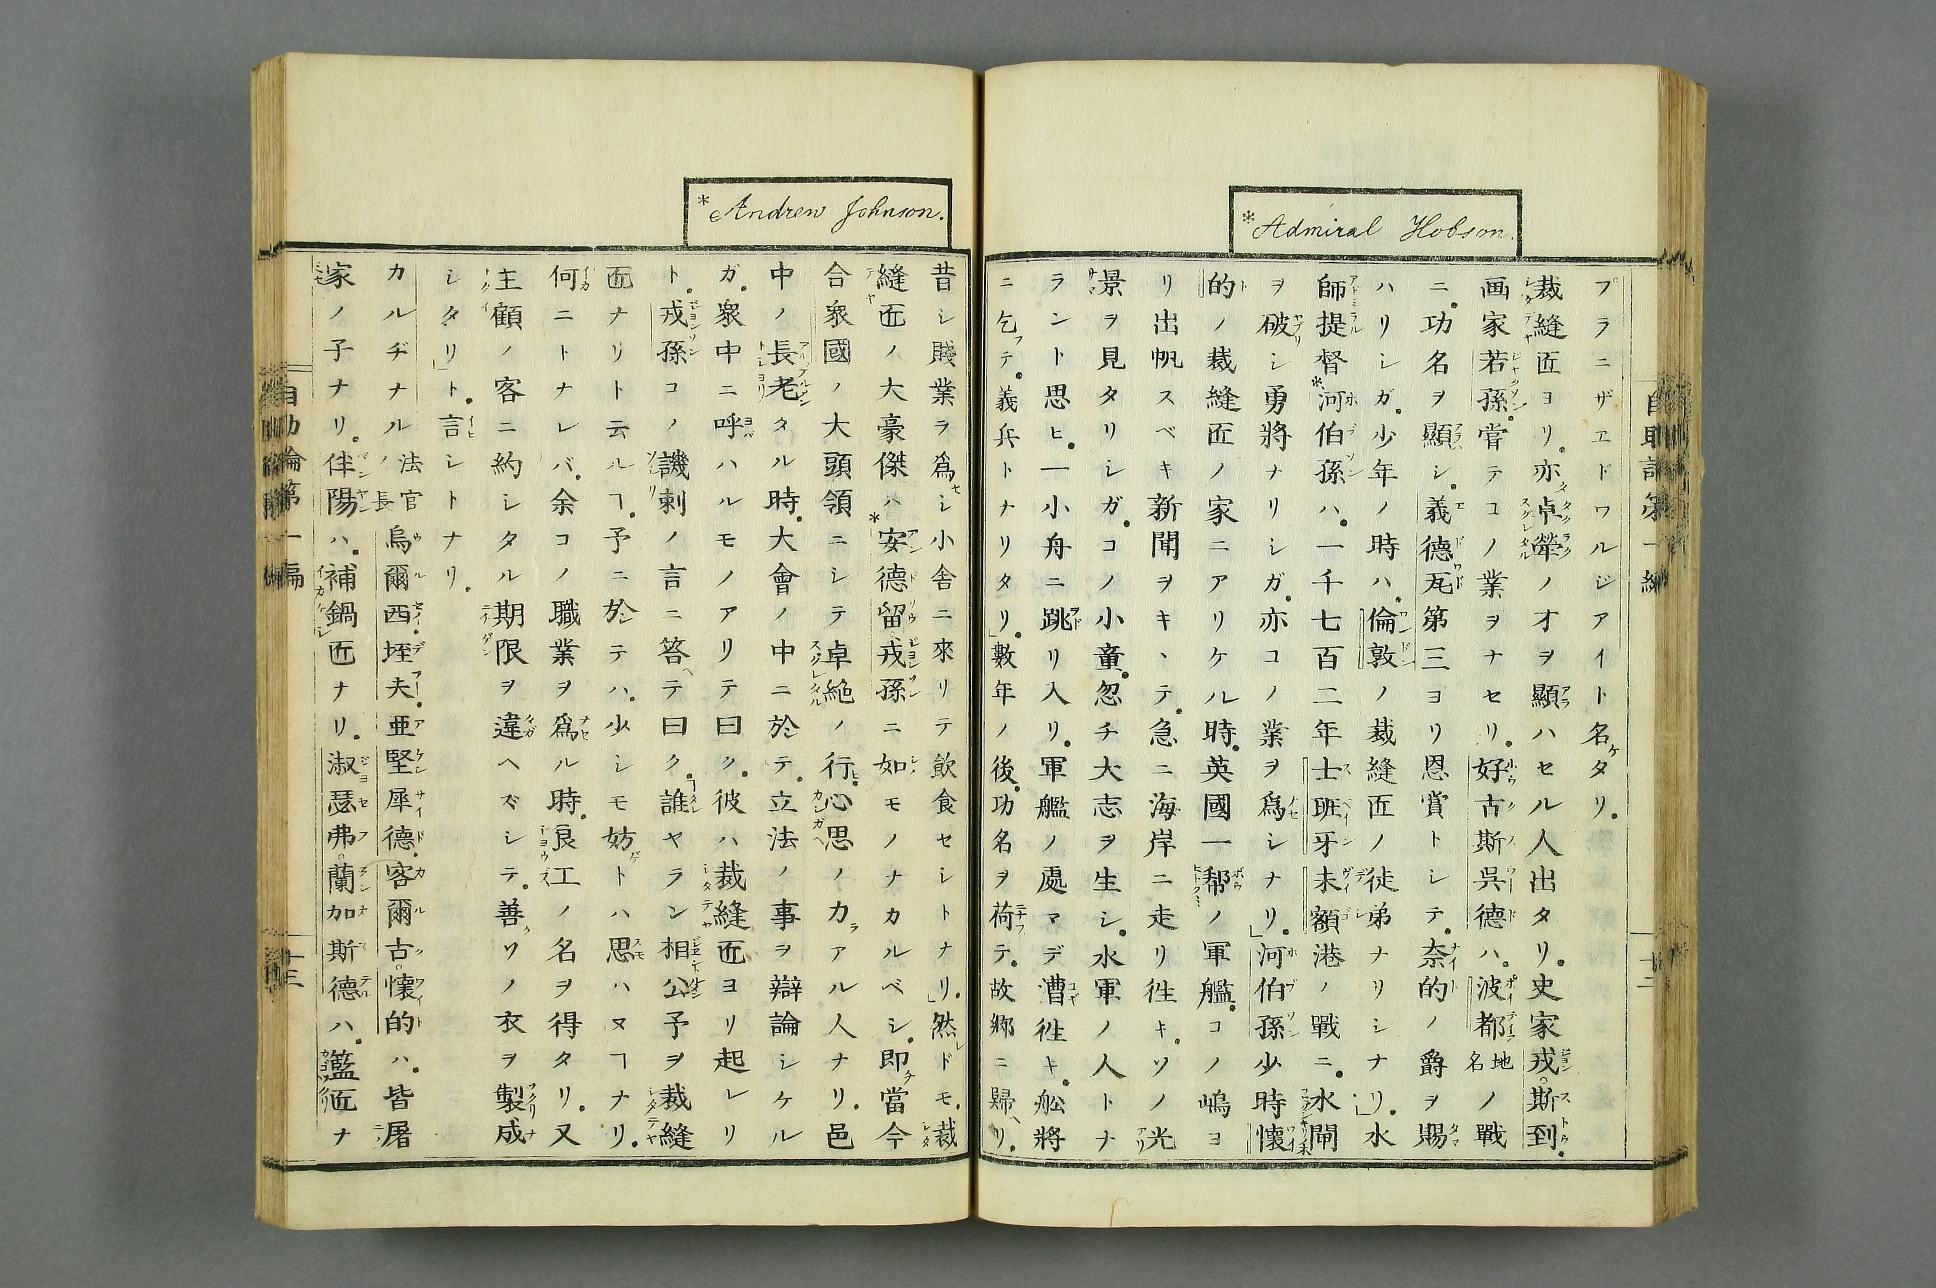 *Admiral Hobson.
プラニザエドワルジアイト名ケタリ。
裁縫匠ヨリ。亦卓犖ノオヲ顯ハセル人出タリ。史家戎斯到。
画家若孫。嘗テコノ業ヲナセリ。好古斯呉德ハ。波都地名ノ戰
ニ。功名ヲ顯シ。義德瓦第三ヨリ恩賞トシテ。奈的ノ爵ヲ賜
ハリシガ。少年ノ時ハ。倫敦ノ裁縫匠ノ徒弟ナリシナリ。」水
師提督*河伯孫ハ。一千七百二年士班牙未額港ノ戰ニ。水閘
ヲ破シ勇將ナリシガ。亦コノ業ヲ爲シナリ。」河伯孫少時懷
的ノ裁縫匠ノ家ニアリケル時。英國一幇ノ軍艦。コノ嶋ヨ
リ出帆スベキ新聞ヲキヽテ。急ニ海岸ニ走リ徃キ。ソノ光
景ヲ見タリシガ。コノ小童。忽チ大志ヲ生シ。水軍ノ人トナ
ラント思ヒ。一小舟ニ跳リ入リ。軍艦ノ處マデ漕徃キ。舩將
ニ乞フテ。義兵トナリタリ。」數年ノ後。功名ヲ荷テ。故郷ニ歸リ。
自助論第一編
十三
*Andrew Johnson.
昔シ賤業ヲ爲セシ小舎ニ來リテ飲食セシトナリ。」然レドモ。裁
縫匠ノ大豪傑ハ*安德留戎孫ニ如モノナカルベシ。即チ當今
合衆國ノ大頭領ニシテ卓絶ノ行ヒ心思ノ力アル人ナリ。邑
中ノ長老タル時。大會ノ中ニ於テ。立法ノ事ヲ辯論シケル
ガ。衆中ニ呼ハルモノアリテ曰ク。彼ハ裁縫匠ヨリ起レリ
ト。戎孫コノ譏刺ノ言ニ答ヘテ曰ク。誰ヤラン相公予ヲ裁縫
匠ナリト云ルヿ。予ニ於テハ。少シモ妨ゲトハ思ハヌヿナリ。
何ニトナレバ。余コノ職業ヲ爲ル時。良工ノ名ヲ得タリ。又
主顧ノ客ニ約シタル期限ヲ違ヘズシテ。善クソノ衣ヲ製成
シタリ」ト。言シトナリ。
カルヂナルノ法官長烏爾西垤夫。亜堅犀德。客爾古。懷的ハ。皆屠
家ノ子ナリ。伴陽ハ。補鍋匠ナリ。淑瑟弗。蘭加斯德ハ。籃匠ナ